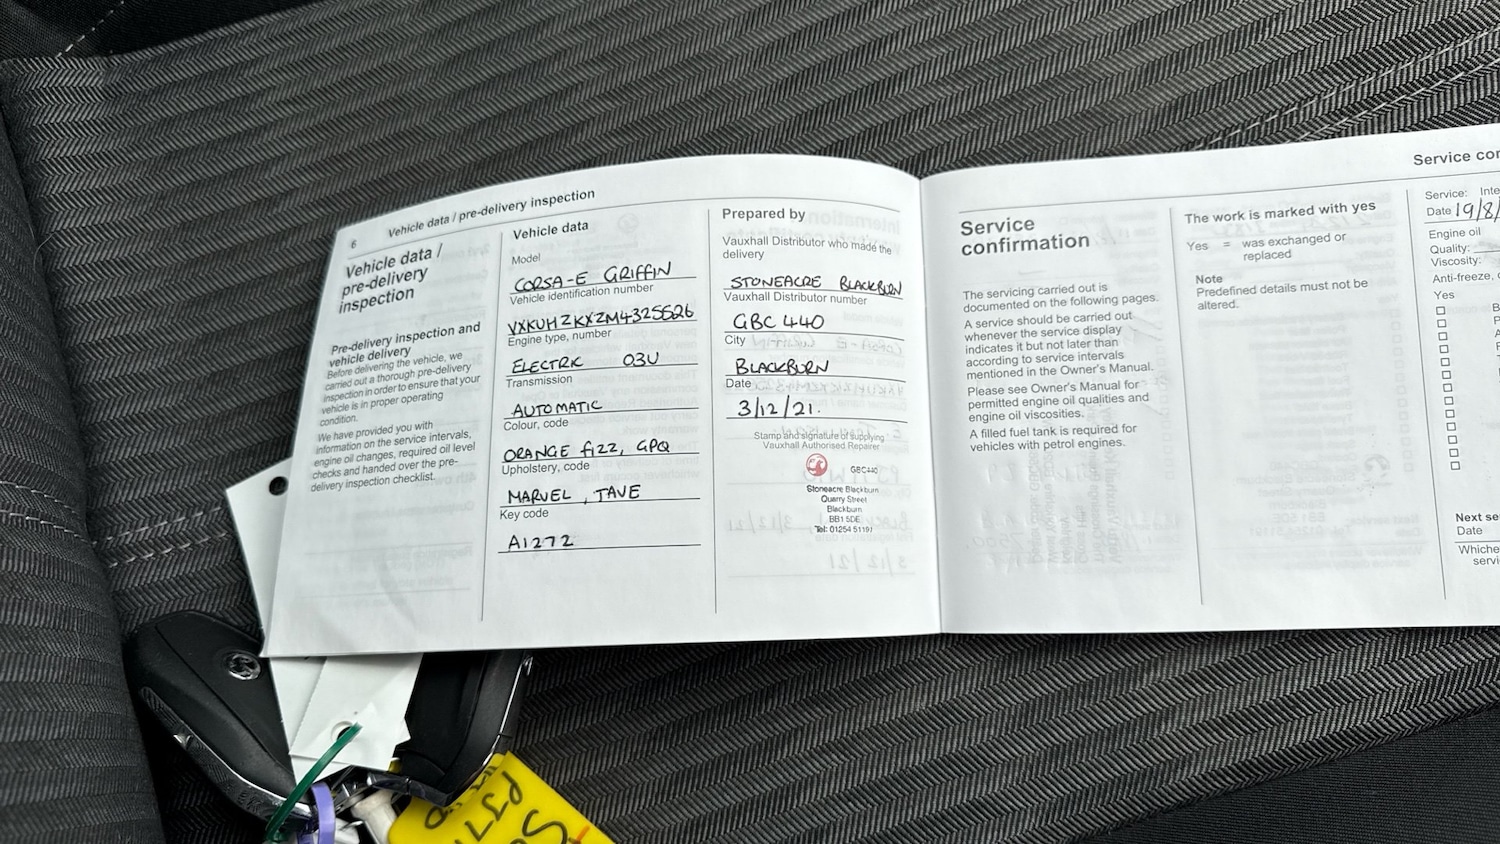 6
Vehicle data / pre-delivery inspection
Vehicle data /
pre-delivery
inspection
Pre-delivery inspection and
vehicle delivery
Before delivering the vehicle, we
carried out a thorough pre-delivery
inspection in order to ensure that your
vehicle is in proper operating
condition.
We have provided you with
information on the service intervals,
engine oil changes, required oil level
checks and handed over the pre-
delivery inspection checklist.
Vehicle data
Model
CORSA-E GRIFFIN
Vehicle identification number
VXKUHZKXZM4325526
Engine type, number
ELECTRIC 03U
Transmission
AUTOMATIC
Colour, code
ORANGE FIZZ, GPQ
Upholstery, code
MARVEL, TAVE
Key code
A1272
Prepared by
Vauxhall Distributor who made the
delivery
STONEACRE BLACKBURN
Vauxhall Distributor number
GBC 440
City
BLACKBURN
Date
3/12/21.
Stamp and signature of supplying
Vauxhall Authorised Repairer
GBC440
Stoneacre Blackburn
Quarry Street
Blackburn
BB1 5DE
Tel: 01254 51191
Service
confirmation
The servicing carried out is
documented on the following pages.
A service should be carried out
whenever the service display
indicates it but not later than
according to service intervals
mentioned in the Owner's Manual.
Please see Owner's Manual for
permitted engine oil qualities and
engine oil viscosities.
A filled fuel tank is required for
vehicles with petrol engines.
The work is marked with yes
Yes = was exchanged or
replaced
Note
Predefined details must not be
altered.
Service:
Date 19/8/
Engine oil
Quality:
Viscosity:
Anti-freeze,
Yes
Next
Date